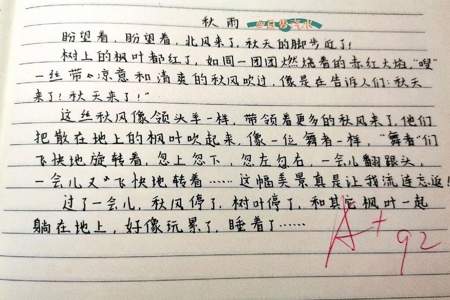 秋雨
盼望着,盼望着,北风来了,秋天的脚步近了!
树上的枫叶都红了,如同一团团燃烧着的赤红火焰,“嘿”
一丝带凉意和清爽的秋风吹过,像是在告诉人们:秋天
来了!秋天来了!”
这丝秋风像领头羊一样,带领着更多的秋风来了,他们
把散在地上的枫叶吹起来,像一位舞者一样,“舞者”们
飞快地旋转着,忽上忽下,忽左勿右,一会儿翻跟头,
一会儿又飞快地转着……这幅美景真是让我流连忘返!
过了一会儿,秋风停了,树叶停了,和其它枫叶一起
躺在地上,好像玩累了,睡着了……
A+ 92